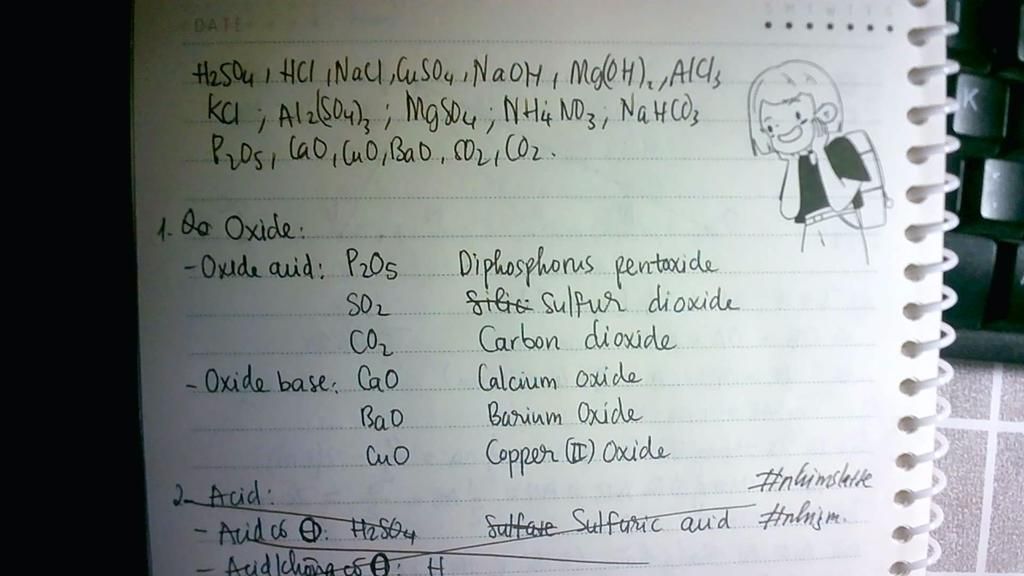 DATE
S M T W T F S
H2SO4, HCl, NaCl, CuSO4, NaOH, Mg(OH)2, AlCl3
KCl ; Al2(SO4)3 ; MgSO4 ; NH4NO3 ; NaHCO3
P2O5, CaO, CuO, BaO, SO2, CO2.
1. Oxide:
- Oxide acid: P2O5 Diphosphorus pentoxide
SO2 Silic Sulfur dioxide
CO2 Carbon dioxide
- Oxide base: CaO Calcium oxide
BaO Barium Oxide
CuO Copper (II) Oxide
2- Acid:
- Acid có O: H2SO4 Sulfate Sulfuric acid
- Acid không có O: H
K